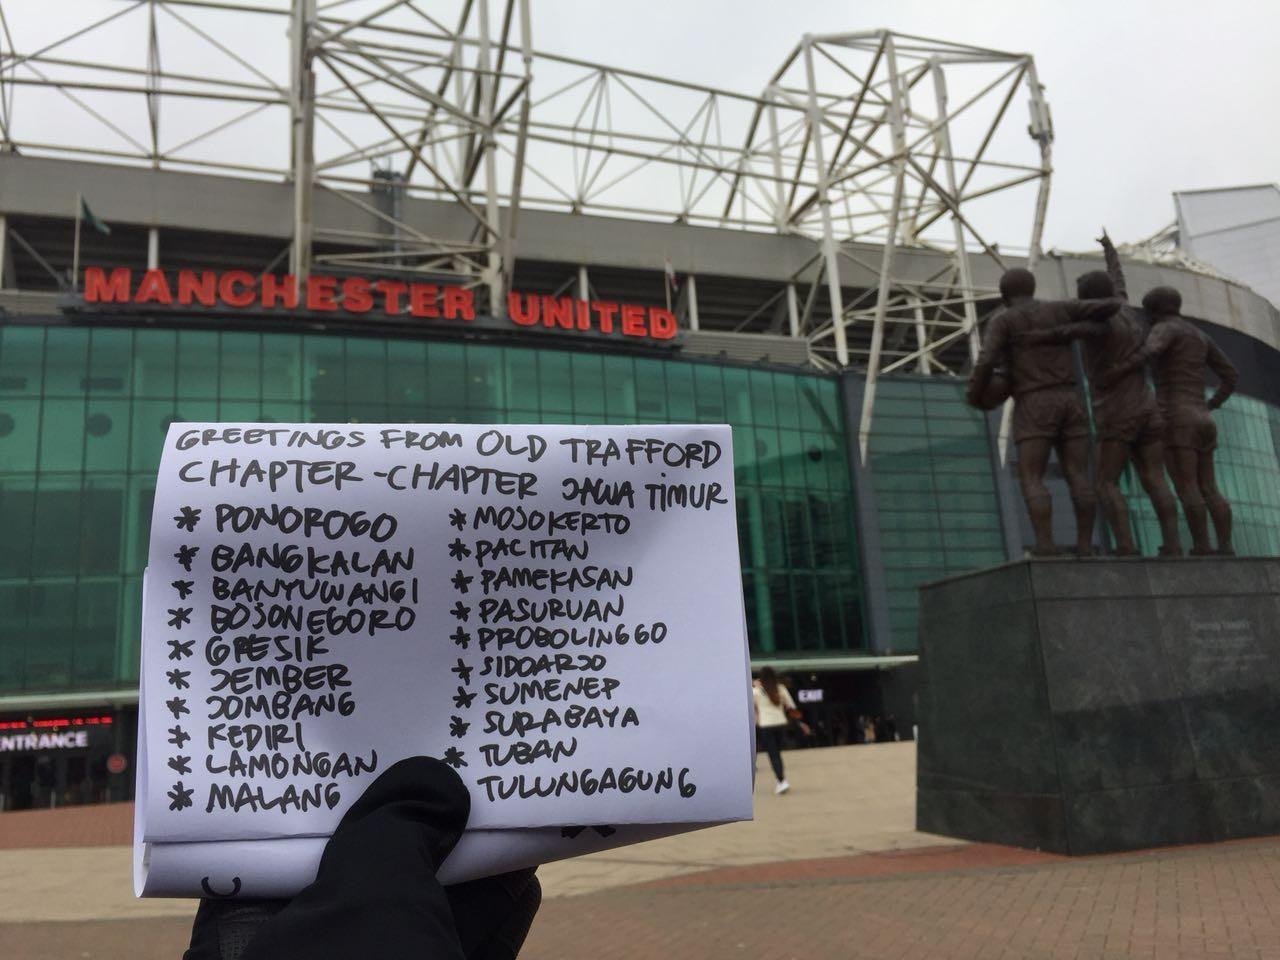 MANCHESTER UNITED
GREETINGS FROM OLD TRAFFORD
CHAPTER-CHAPTER JAWA TIMUR
* PONOROGO
* BANGKALAN
* BANYUWANGI
* BOJONEGORO
* GRESIK
* JEMBER
* JOMBANG
* KEDIRI
* LAMONGAN
* MALANG
* MOJOKERTO
* PACITAN
* PAMEKASAN
* PASURUAN
* PROBOLINGGO
* SIDOARJO
* SUMENEP
* SURABAYA
* TUBAN
TULUNGAGUNG
ENTRANCE
EXIT